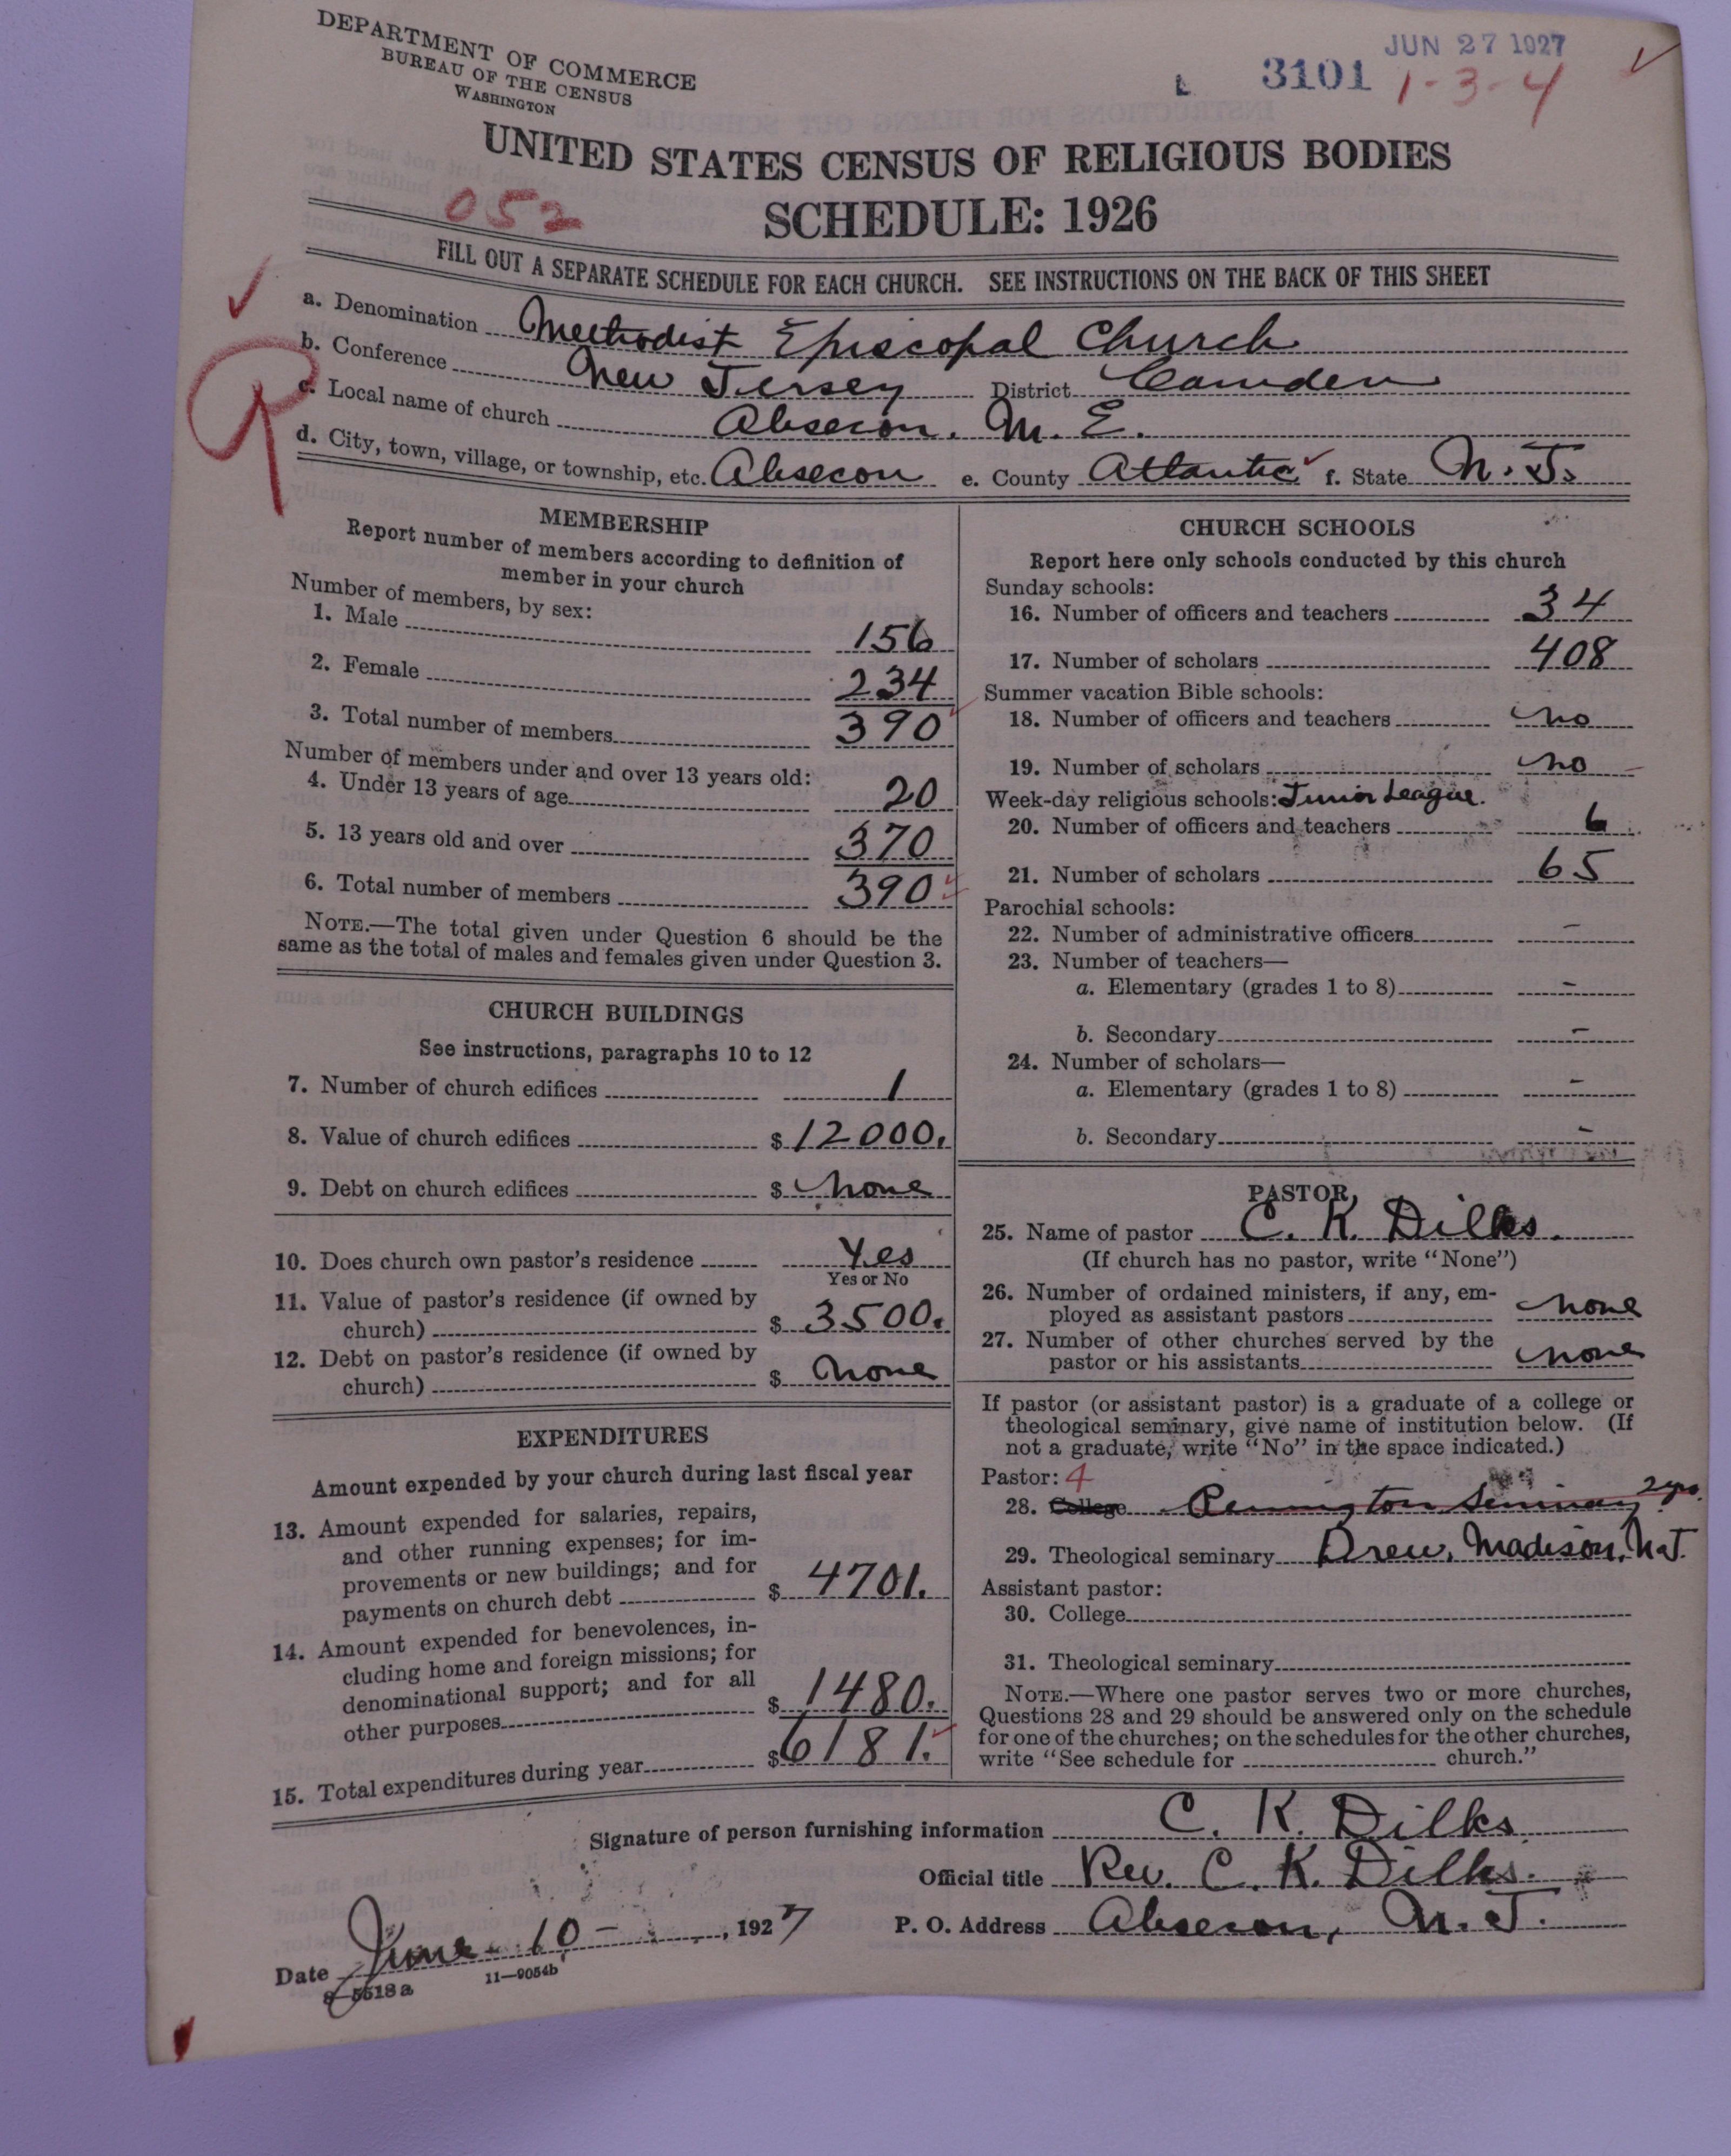 DEPARTMENT OF COMMERCE
BUREAU OF THE CENSUS
WASHINGTON
JUN 27 1927
L 3101 1-3-4
UNITED STATES CENSUS OF RELIGIOUS BODIES
052
SCHEDULE: 1926
FILL OUT A SEPARATE SCHEDULE FOR EACH CHURCH. SEE INSTRUCTIONS ON THE BACK OF THIS SHEET
a. Denomination Methodist Episcopal Church
b. Conference New Jersey District Camden
c. Local name of church Absecon. M. E.
d. City, town, village, or township, etc. Absecon e. County Atlantic f. State N. J.
MEMBERSHIP
Report number of members according to definition of
member in your church
Number of members, by sex:
1. Male 156
2. Female 234
3. Total number of members 390
Number of members under and over 13 years old:
4. Under 13 years of age 20
5. 13 years old and over 370
6. Total number of members 390
NOTE.—The total given under Question 6 should be the
same as the total of males and females given under Question 3.
CHURCH BUILDINGS
See instructions, paragraphs 10 to 12
7. Number of church edifices 1
8. Value of church edifices $ 12000.
9. Debt on church edifices $ none
10. Does church own pastor's residence Yes
Yes or No
11. Value of pastor's residence (if owned by
church) $ 3500.
12. Debt on pastor's residence (if owned by
church) $ none
EXPENDITURES
Amount expended by your church during last fiscal year
13. Amount expended for salaries, repairs,
and other running expenses; for im-
provements or new buildings; and for
payments on church debt $ 4701.
14. Amount expended for benevolences, in-
cluding home and foreign missions; for
denominational support; and for all
other purposes $ 1480.
15. Total expenditures during year $ 6181.
CHURCH SCHOOLS
Report here only schools conducted by this church
Sunday schools:
16. Number of officers and teachers 34
17. Number of scholars 408
Summer vacation Bible schools:
18. Number of officers and teachers no
19. Number of scholars no
Week-day religious schools: Junior League.
20. Number of officers and teachers 6
21. Number of scholars 65
Parochial schools:
22. Number of administrative officers -
23. Number of teachers—
a. Elementary (grades 1 to 8) -
b. Secondary -
24. Number of scholars—
a. Elementary (grades 1 to 8) -
b. Secondary -
PASTOR
25. Name of pastor C. K. Dilks.
(If church has no pastor, write "None")
26. Number of ordained ministers, if any, em-
ployed as assistant pastors none
27. Number of other churches served by the
pastor or his assistants none
If pastor (or assistant pastor) is a graduate of a college or
theological seminary, give name of institution below. (If
not a graduate, write "No" in the space indicated.)
Pastor: 4
28. College Pennington Seminary 2 yrs.
29. Theological seminary Drew, Madison, N.J.
Assistant pastor:
30. College
31. Theological seminary
NOTE.—Where one pastor serves two or more churches,
Questions 28 and 29 should be answered only on the schedule
for one of the churches; on the schedules for the other churches,
write "See schedule for church."
Signature of person furnishing information C. K. Dilks
Official title Rev. C. K. Dilks.
Date June 10 - , 1927 P. O. Address Absecon, N. J.
8—5518 a 11—9054b